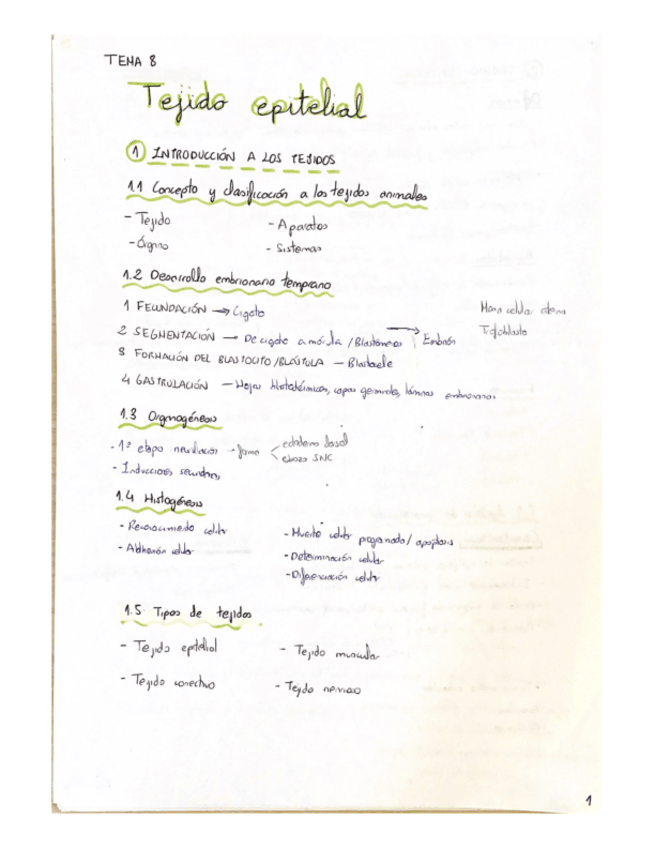 TEMA 8
Tejido epitelial
1 INTRODUCCIÓN A LOS TEJIDOS
1.1 Concepto y clasificación a los tejidos animales
- Tejido
- Aparatos
- Órgano
- Sistemas
1.2 Desarrollo embrionario temprano
1 FECUNDACIÓN → Cigoto
2 SEGMENTACIÓN — De cigoto a mórula / Blastómeros → Embrión
Masa celular interna
Trofoblasto
3 FORMACIÓN DEL BLASTOCITO / BLÁSTULA — Blastocele
4 GASTRULACIÓN — Hojas blastodérmicas, capas germinales, láminas embrionarias
1.3 Organogénesis
- 1ª etapo neurulación → forma
ectodermo dorsal
esbozo SNC
- Inducciones secundarias
1.4 Histogénesis
- Reconocimiento celular
- Adhesión celular
- Muerte celular programada / apoptosis
- Determinación celular
- Diferenciación celular
1.5 Tipos de tejidos
- Tejido epitelial
- Tejido muscular
- Tejido conectivo
- Tejido nervioso
1